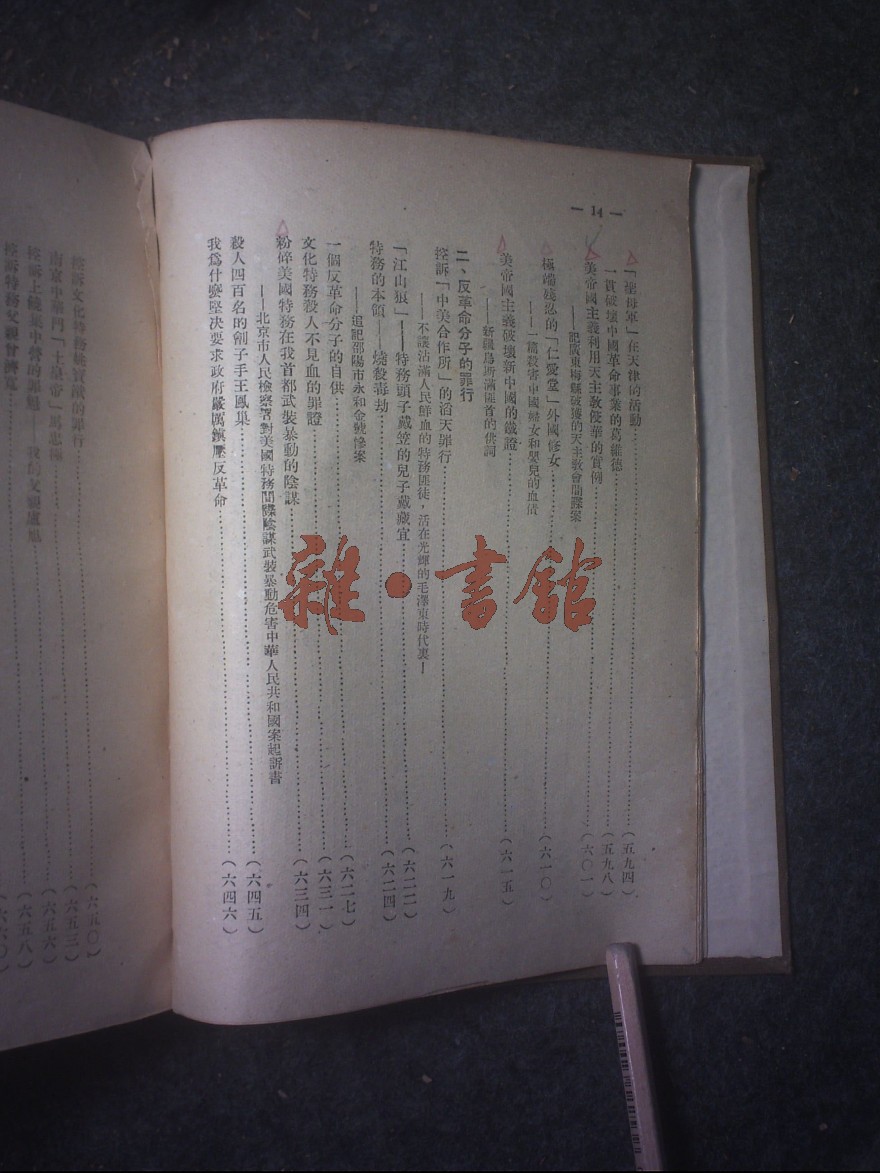 — 14 —
「聖母軍」在天津的活動（五九四）
一貫破壞中國革命事業的葛維德（五九八）
美帝國主義利用天主教侵華的實例（六〇一）
——記廣東梅縣破獲的天主教會間諜案
極端殘忍的「仁愛堂」外國修女（六一〇）
——一篇殺害中國婦女和嬰兒的血債
美帝國主義破壞新中國的鐵證（六一五）
二、反革命分子的罪行
控訴「中美合作所」的滔天罪行（六一九）
——不讓沾滿人民鮮血的特務匪徒，活在光輝的毛澤東時代裏！
「江山狼」——特務頭子戴笠的兒子戴藏宜（六二二）
特務的本領——燒殺毒劫（六二四）
——追記邵陽市永和金號慘案
一個反革命分子的自供（六二七）
文化特務殺人不見血的罪證（六三一）
粉碎美國特務在我首都武裝暴動的陰謀（六三四）
——北京市人民檢察署對美國特務間諜陰謀武裝暴動危害中華人民共和國案起訴書
殺人四百名的劊子手王鳳巢（六四五）
我爲什麼堅决要求政府嚴厲鎮壓反革命（六四六）
（六五〇）
（六五三）
（六五六）
（六五八）
雜·書館